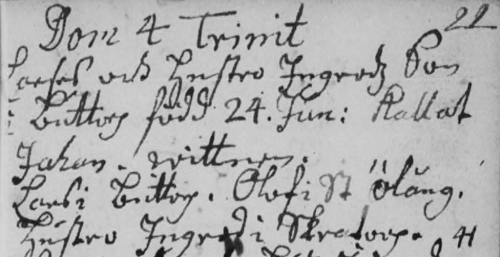 Dom 4 Trinit 22
Larses och Hustro Ingredz Son
i Buttorp född 24. Jun: Kallat
Johan. wittnen.
Lars i Buttorp. Olof i St ölång.
Hustro Ingred i Skratorp.